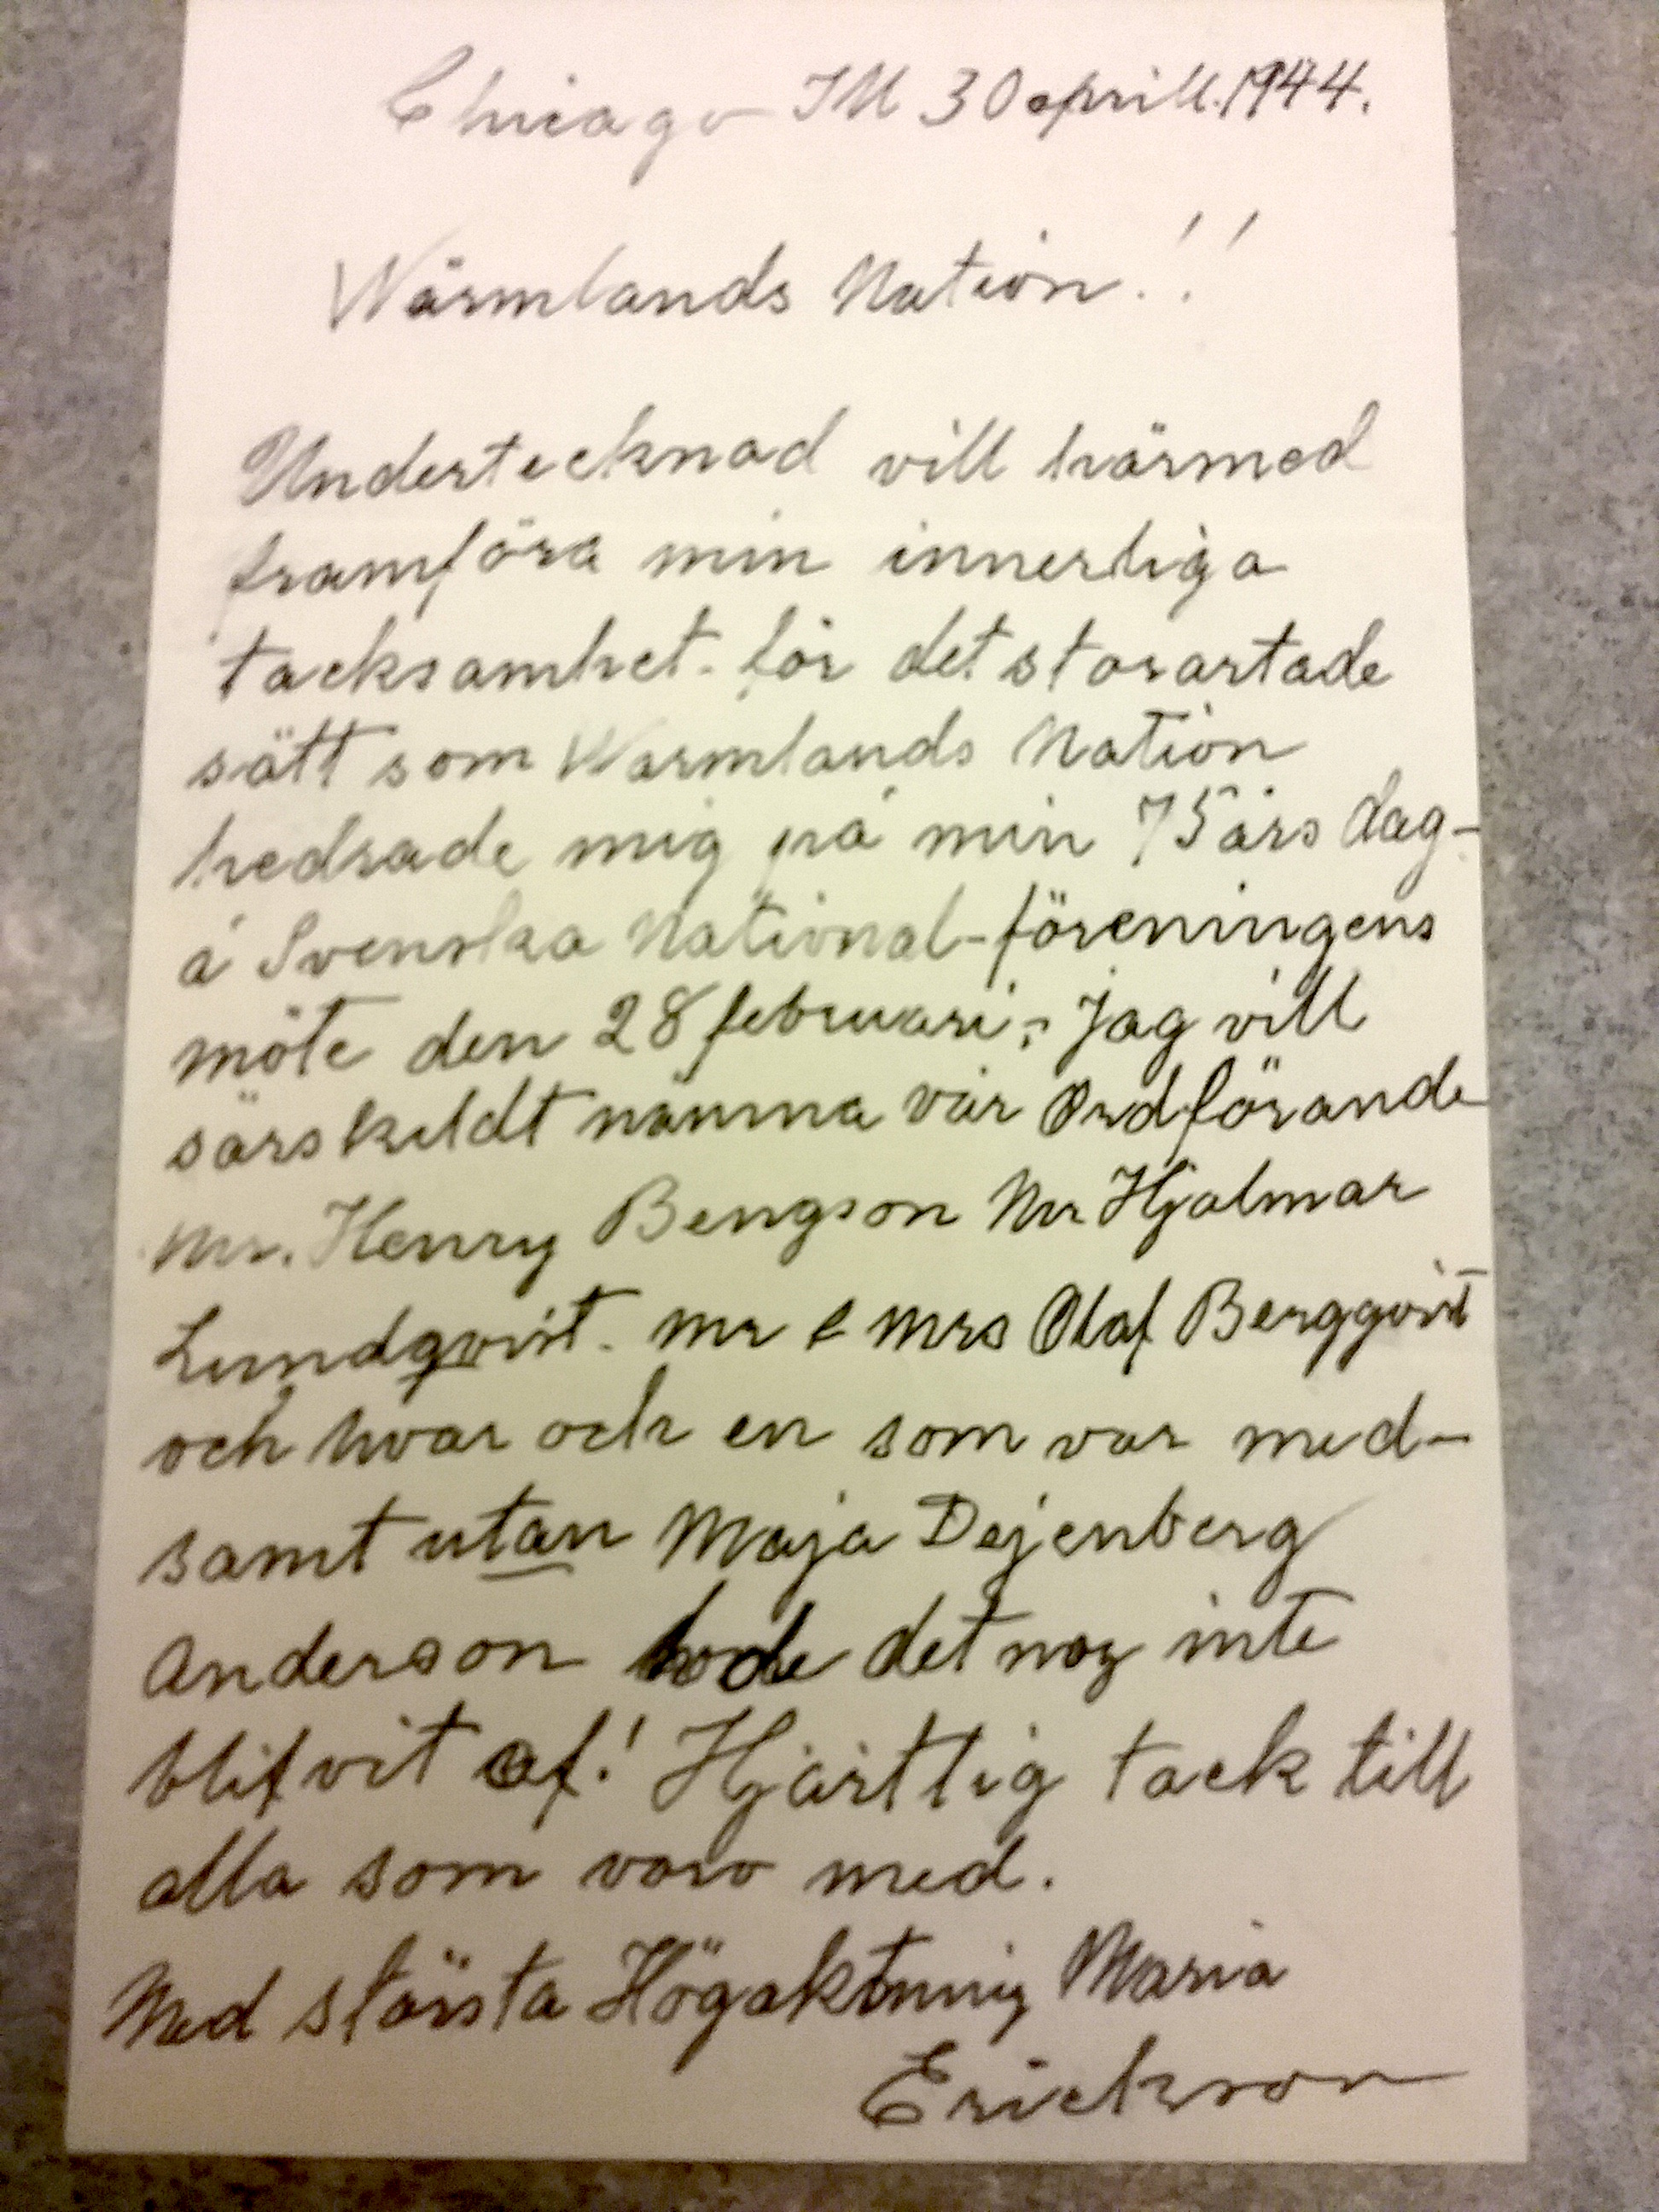 Chicago Ill 30 aprill. 1944.
Wärmlands Nation!!
Undertecknad vill härmed
framföra min innerliga
tacksamhet - för det storartade
sätt som Warmlands Nation
hedrade mig på min 75 års dag-
å Svenska National-föreningens
möte den 28 februari; Jag vill
särskeldt nämna vår Ordförande
Mr. Henry Bengson Mr Hjalmar
Lundqvist. Mr & Mrs Olaf Bergqvist
och hvar och en som var med-
samt utan Maja Dejenberg
Anderson hade det nog inte
blifvit af! Hjärtlig tack till
alla som voro med.
Med största Högaktning Maria
Erickson